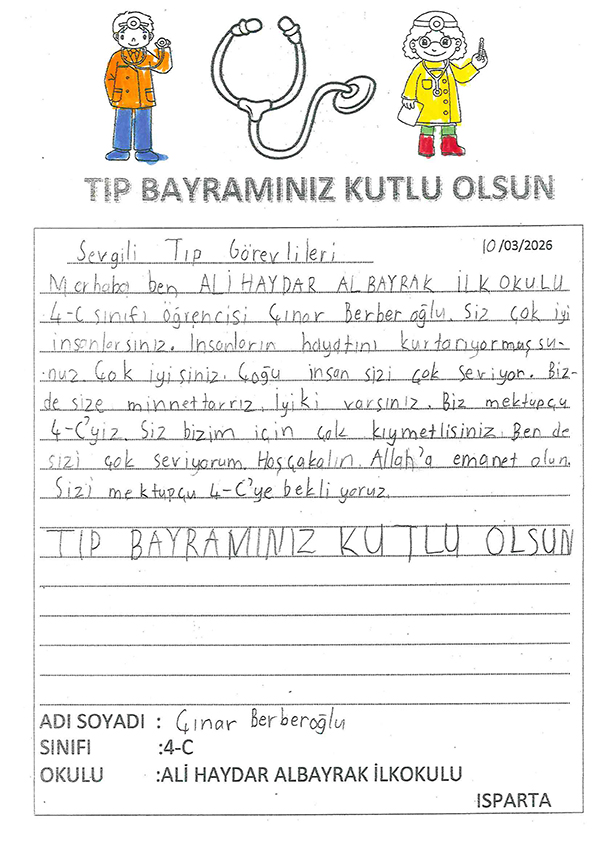 TIP BAYRAMINIZ KUTLU OLSUN
Sevgili Tıp Görevlileri 10/03/2026
Merhaba ben ALİ HAYDAR ALBAYRAK İLKOKULU
4-C sınıfı öğrencisi Çınar Berberoğlu. Siz çok iyi
insanlarsınız. İnsanların hayatını kurtarıyormuşsu-
nuz. Çok iyisiniz. Çoğu insan sizi çok seviyor. Biz-
de size minnettarız. İyiki varsınız. Biz mektupçu
4-C'yiz. Siz bizim için çok kıymetlisiniz. Ben de
sizi çok seviyorum. Hoşçakalın. Allah'a emanet olun.
Sizi mektupçu 4-C'ye bekliyoruz.
TIP BAYRAMINIZ KUTLU OLSUN
ADI SOYADI : Çınar Berberoğlu
SINIFI :4-C
OKULU :ALİ HAYDAR ALBAYRAK İLKOKULU
ISPARTA